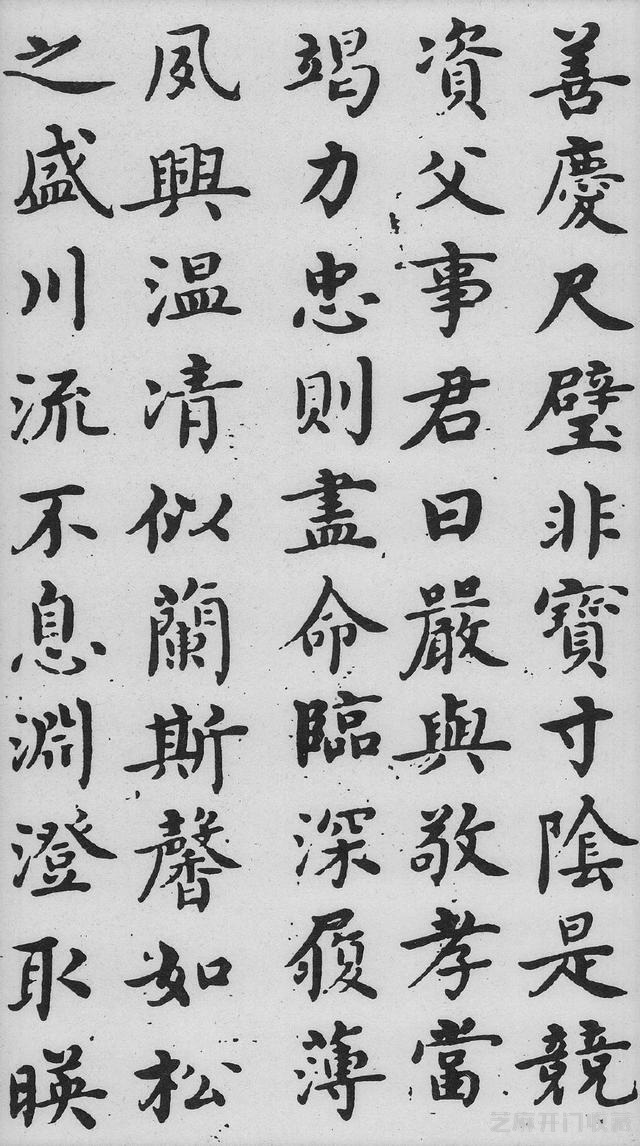 善慶尺璧非寶寸陰是競
資父事君曰嚴與敬孝當
竭力忠則盡命臨深履薄
夙興温凊似蘭斯馨如松
之盛川流不息淵澄取暎
芝麻开门收藏